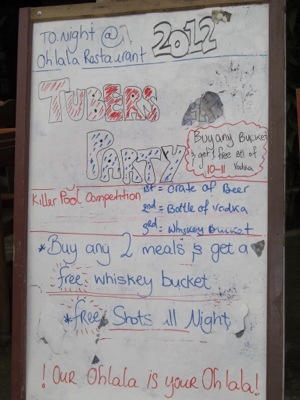 TO.night @
Ohlala Restaurant 2012
TUBERS
PARTY
Buy any Bucket
& get 1 free of
Vodka
10-11
Killer Pool Competition 1st = Crate of Beer
2nd = Bottle of Vodka
3rd = Whiskey Bucket
*Buy any 2 meals & get a
free whiskey bucket
*free Shots all Night
! Our Ohlala is your Ohlala!